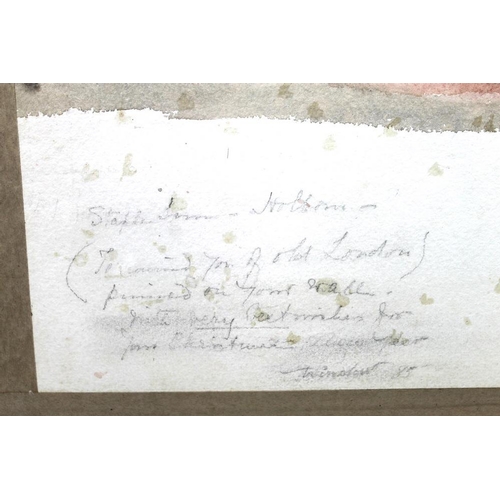 Staple Inn - Holborn -
(To remind you of old London)
pinned on your wall.
With very best wishes for
your Christmas & New Year